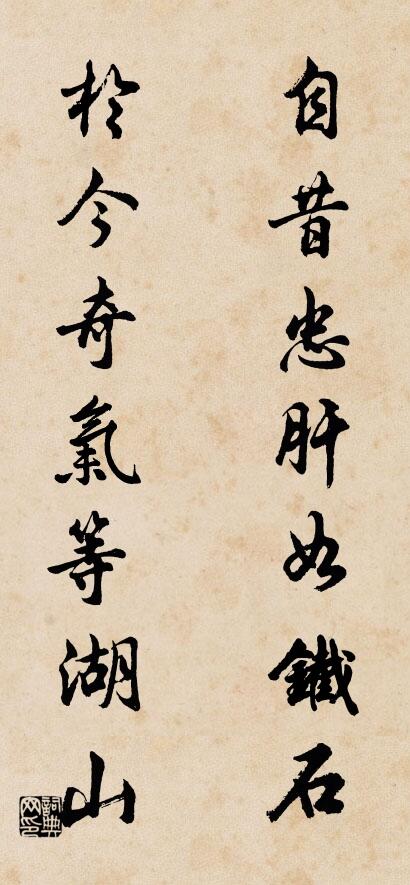 自昔忠肝如鐵石
於今奇氣等湖山
詞典網印